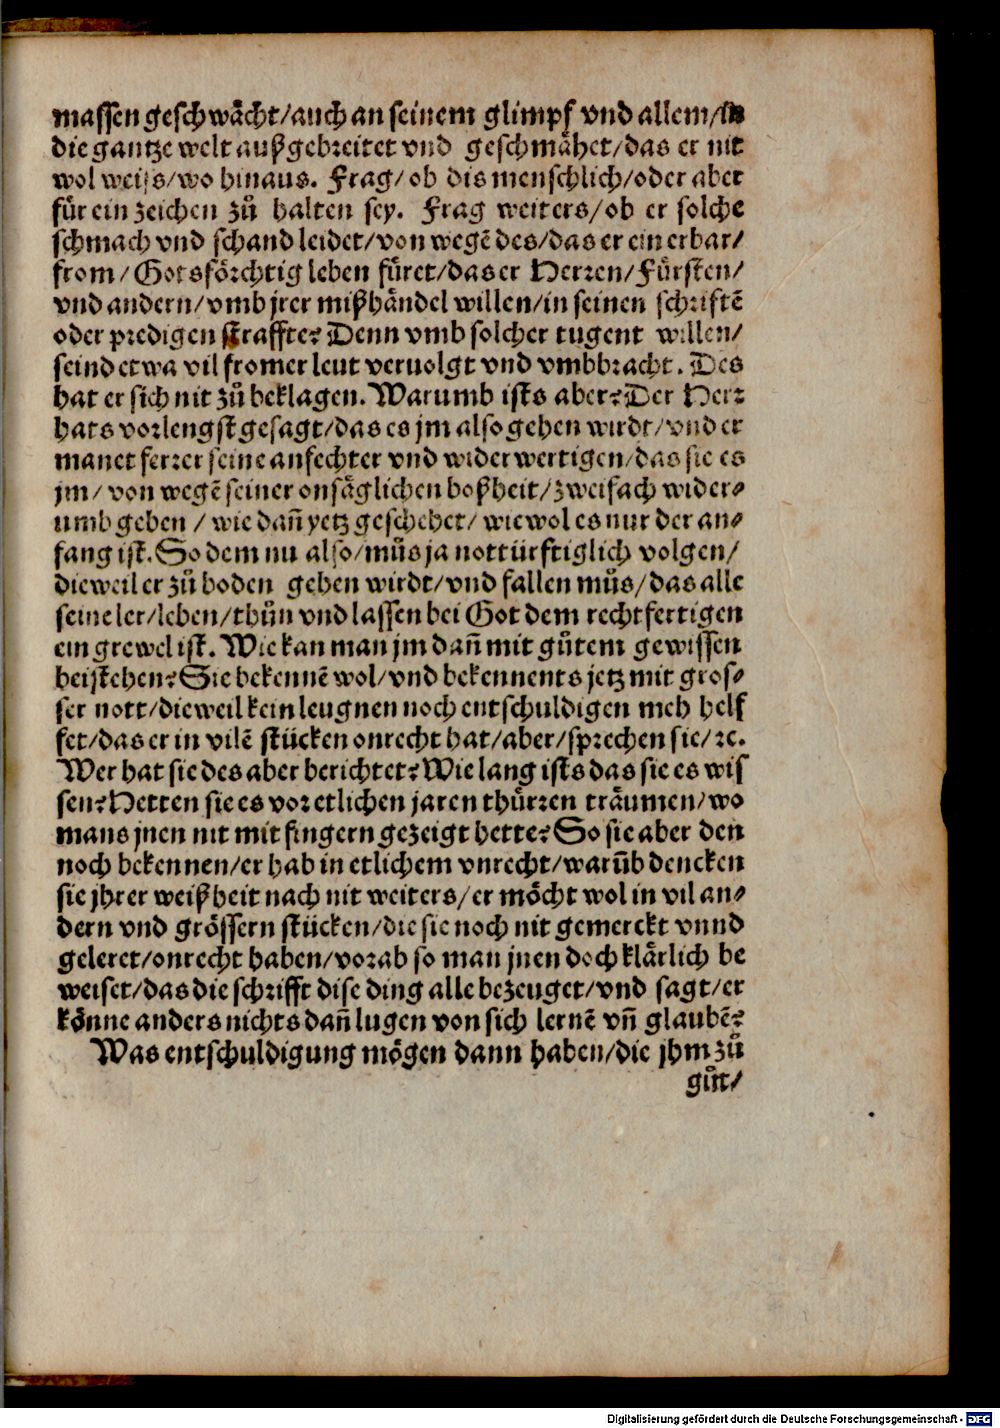 massen geschwächt/auch an seinem glimpf vnd allem/in
die gantze welt außgebreitet vnd geschmähet/das er nit
wol weiss/wo hinaus. Frag/ob dis menschlich/oder aber
für ein zeichen zů halten sey. Frag weiters/ob er solche
schmach vnd schand leidet/von wegē des/das er ein erbar/
from/Gotsförchtig leben füret/das er Herren/Fürsten/
vnd andern/vmb jrer mißhändel willen/in seinen schriftē
oder predigen straffte? Denn vmb solcher tugent willen/
seind etwa vil fromer leut veruolgt vnd vmbbracht. Des
hat er sich nit zů beklagen. Warumb ists aber? Der Herr
hats vorlengst gesagt/das es jm also gehen wirdt/vnd er
manet ferrer seine anfechter vnd widerwertigen/das sie es
jm/von wegē seiner onsäglichen boßheit/zweifach wider⸗
umb geben/wie dañ yetz geschehet/wiewol es nur der an⸗
fang ist. So dem nu also/můs ja nottürftiglich volgen/
dieweil er zů boden gehen wirdt/vnd fallen můs/das alle
seine ler/leben/thůn vnd lassen bei Got dem rechtfertigen
ein grewel ist. Wie kan man jm dañ mit gůtem gewissen
beistehen? Sie bekennē wol/vnd bekennents jetz mit gros⸗
ser nott/dieweil kein leugnen noch entschuldigen meh helf
fet/das er in vilē stücken onrecht hat/aber/sprechen sie/ꝛc.
Wer hat sie des aber berichtet? Wie lang ists das sie es wis
sen? Hetten sie es vor etlichen jaren thürren träumen/wo
mans jnen nit mit fingern gezeigt hette? So sie aber den
noch bekennen/er hab in etlichem vnrecht/warūb dencken
sie jhrer weißheit nach nit weiters/er möcht wol in vil an⸗
dern vnd grössern stücken/die sie noch nit gemerckt vnnd
geleret/onrecht haben/vorab so man jnen doch klärlich be
weiset/das die schrifft dise ding alle bezeuget/vnd sagt/er
könne anders nichts dañ lugen von sich lernē vñ glaubē?
Was entschuldigung mögen dann haben/die jhm zů
gůt/
Digitalisierung gefördert durch die Deutsche Forschungsgemeinschaft - DFG